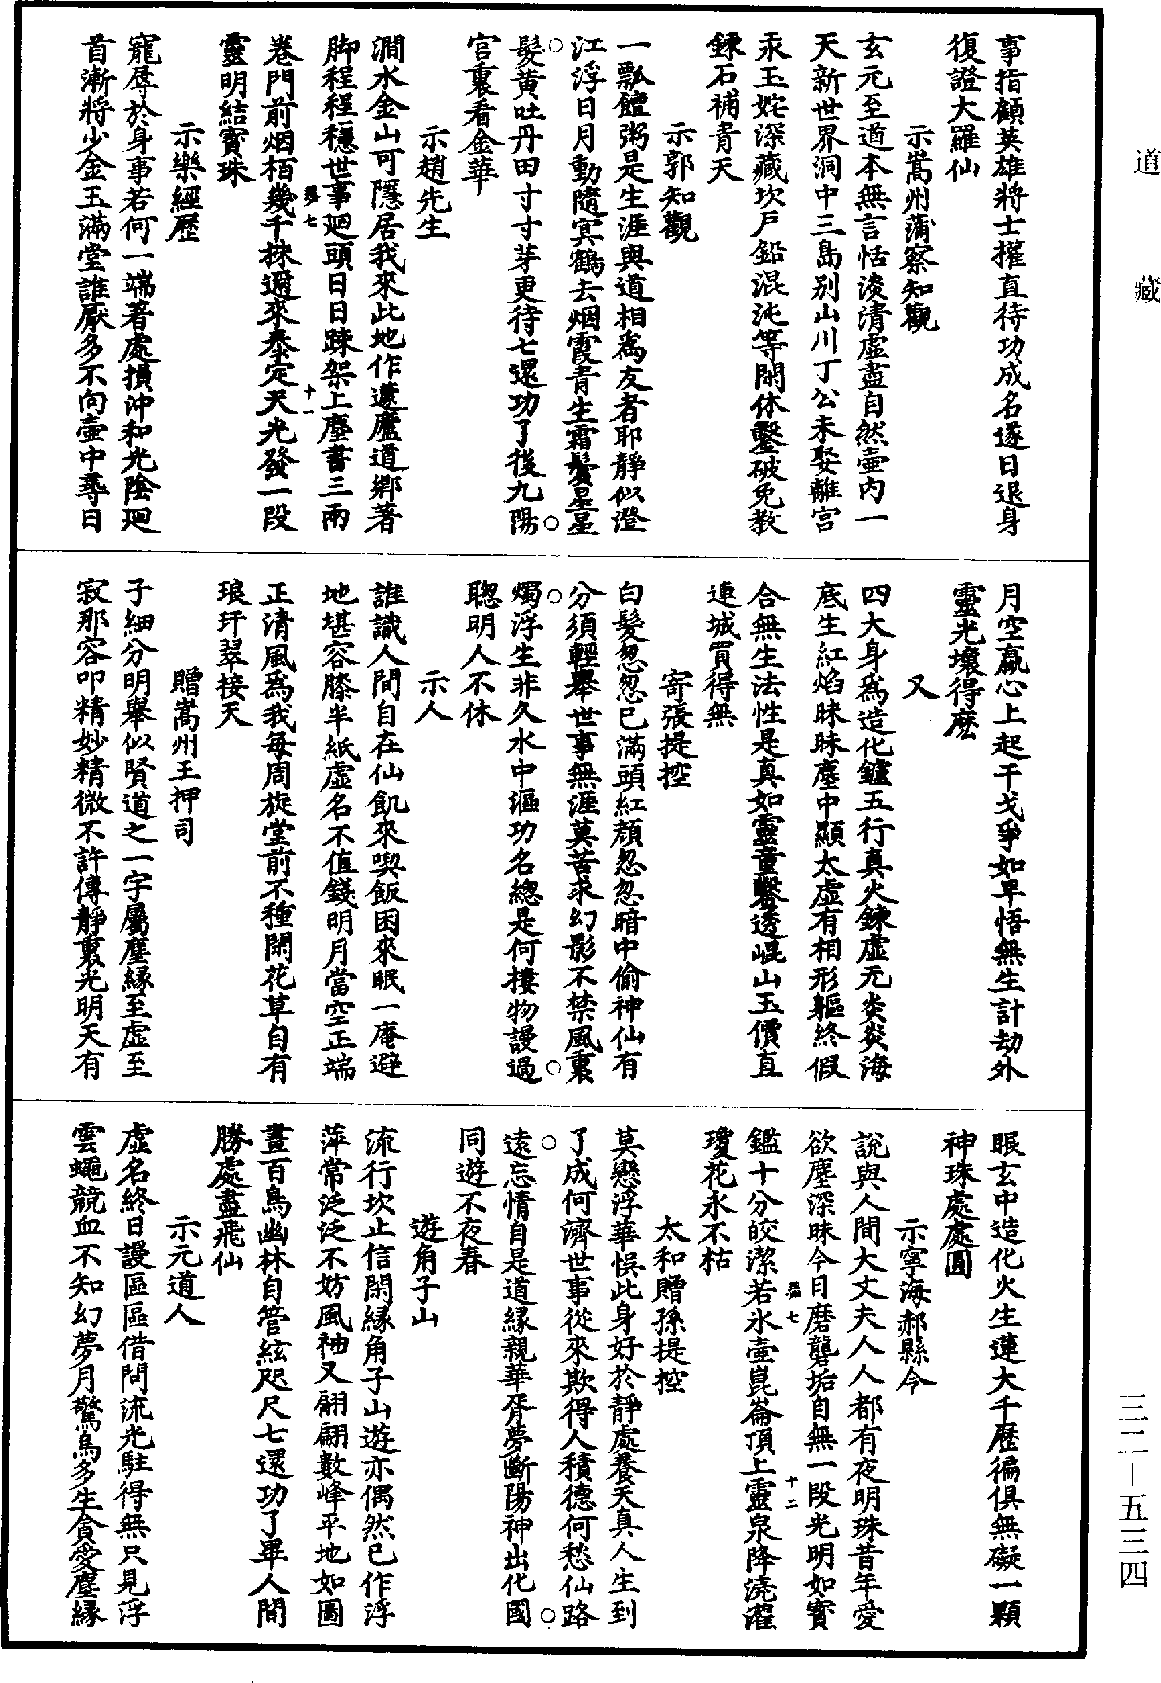 道藏
事指顧英雄將士權直待功成名遂日退身
復證大羅仙
示嵩州蒲察知觀
玄元至道本無言恬淡清虛盡自然壺內一
天新世界洞中三島別山川丁公未娶離宮
汞玉姹深藏坎戶鉛混沌等閑休鑿破免教
鍊石補青天
示郭知觀
一瓢饘粥是生涯與道相為友者耶靜似澄
江浮日月動隨冥鶴去烟霞青生霜鬢星星
髮黃吐丹田寸寸芽更待七還功了後九陽
宮裏看金華
示趙先生
澗水金山可隱居我來此地作蘧廬道鄉著
脚程程穩世事廻頭日日踈架上塵書三兩
卷門前烟栢幾千株邇來泰定天光發一段
七
十一
靈明結寶珠
示樂經歷
寵辱於身事若何一端著處損沖和光陰廻
首漸將少金玉滿堂誰厭多不向壺中尋日
月空贏心上起干戈爭如早悟無生計劫外
靈光壞得麽
又
四大身為造化鑪五行真火鍊虛无炎炎海
底生紅焰昧昧塵中顯太虛有相形軀終假
合無生法性是真如靈童鑿透崐山玉價直
連城買得無
寄張提控
白髮忽忽已滿頭紅顏忽忽暗中偷神仙有
分須輕舉世事無涯莫苦求幻影不禁風裏
燭浮生非久水中漚功名總是何樓物謾過
聰明人不休
示人
誰識人間自在仙飢來喫飯困來眠一庵避
地堪容膝半紙虛名不值錢明月當空正端
正清風為我每周旋堂前不種閑花草自有
琅玕翠接天
贈嵩州王押司
子細分明舉似賢道之一字屬塵緣至虛至
寂那容叩精妙精微不許傳靜裏光明天有
眼玄中造化火生蓮大千歷徧俱無礙一顆
神珠處處圓
示寧海郝縣令
說與人間大丈夫人人都有夜明珠昔年愛
欲塵深昧今日磨礱垢自無一段光明如寶
七
十二
鑑十分皎潔若氷壺崑崙頂上靈泉降澆灌
瓊花永不枯
太和贈孫提控
莫戀浮華悞此身好於靜處養天真人生到
了成何濟世事從來欺得人積德何愁仙路
遠忘情自是道緣親華胥夢斷陽神出化國
同遊不夜春
遊角子山
流行坎止信閑緣角子山遊亦偶然已作浮
萍常泛泛不妨風袖又翩翩數峰平地如圖
畫百鳥幽林自管絃咫尺七還功了畢人間
勝處盡飛仙
示元道人
虛名終日謾區區借問流光駐得無只見浮
雲蠅競血不知幻夢月驚烏多生貪愛塵緣
三二—五三四